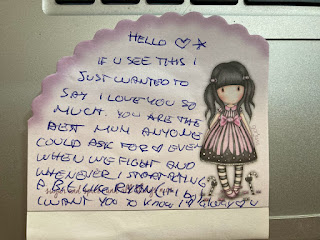 HELLO ♡ ☆
IF U SEE THIS I
JUST WANTED TO
SAY I LOVE YOU SO
MUCH. YOU ARE THE
BEST MUM ANYONE
COULD ASK FOR ♡ EVEN
WHEN WE FIGHT AND
WHENEVER I START
A BIG LIKE
I WANT YOU TO KNOW I'll ♡ U